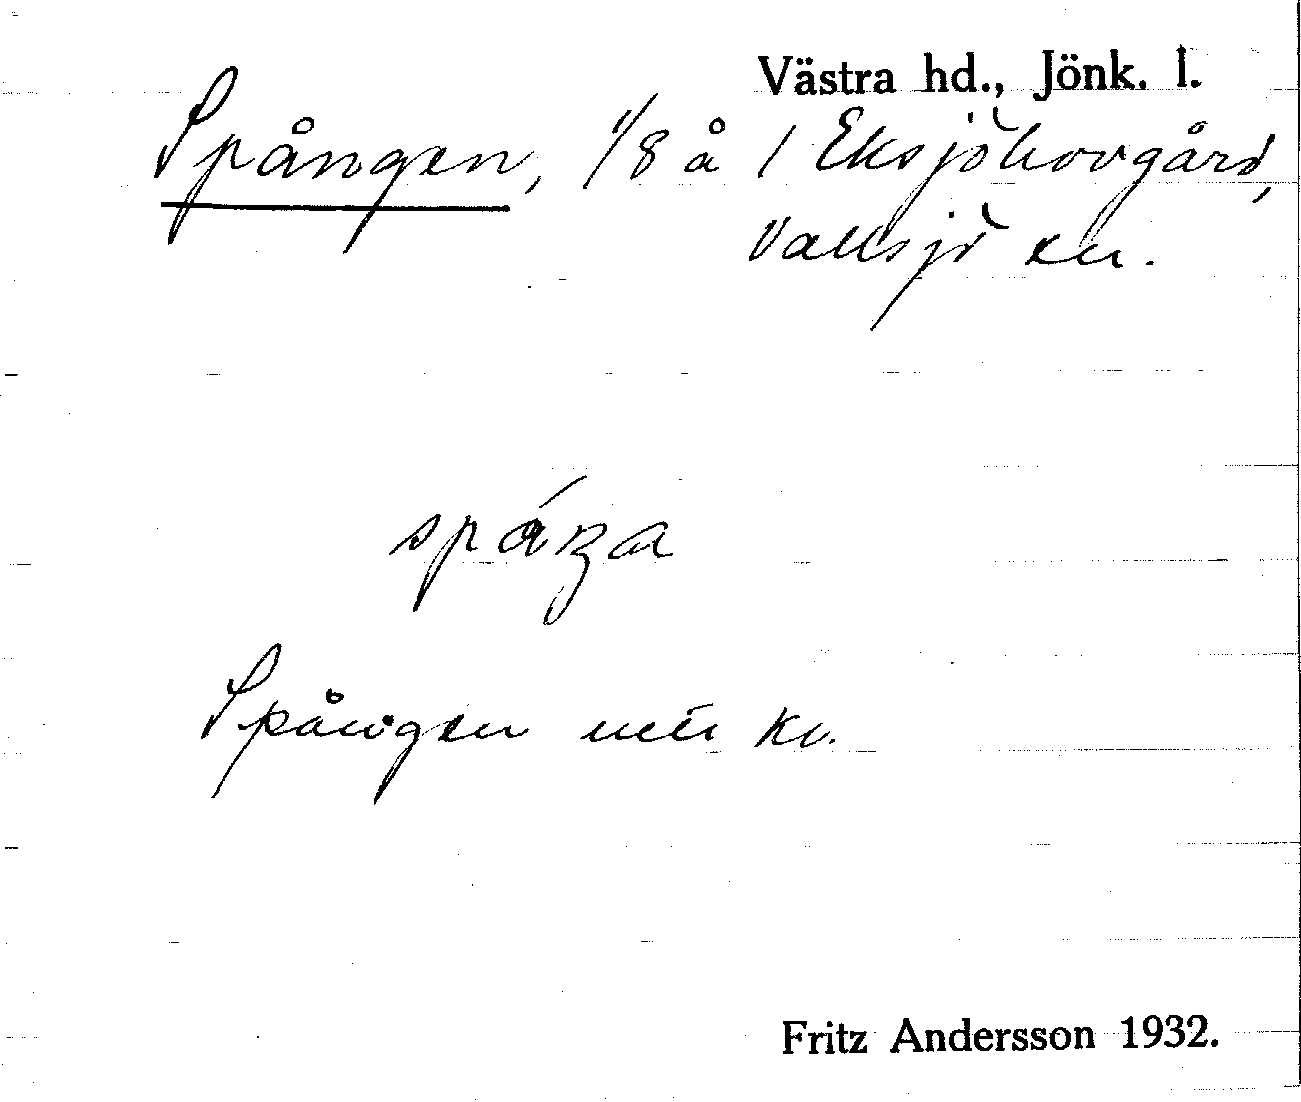 Västra hd., Jönk. l.
Spången, 1/8 å 1 Eksjöhovgård,
Vallsjö sn.
Spången
Fritz Andersson 1932.